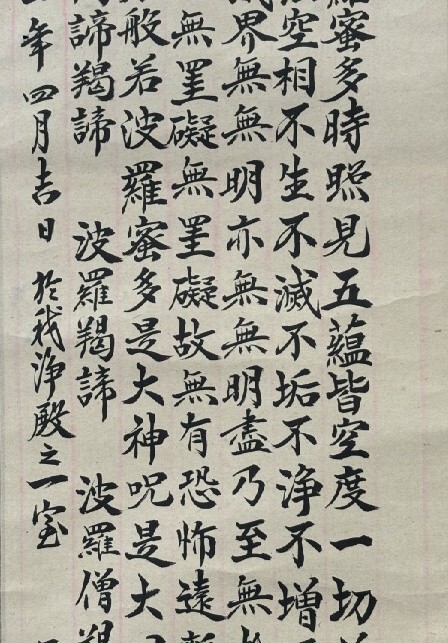 蜜多時照見五蘊皆空度一切
空相不生不滅不垢不浄不増
界無無明亦無無明盡乃至無
無罣礙無罣礙故無有恐怖遠
般若波羅蜜多是大神呪是大
諦羯諦 波羅羯諦 波羅僧
年四月吉日 於我浄殿之一室